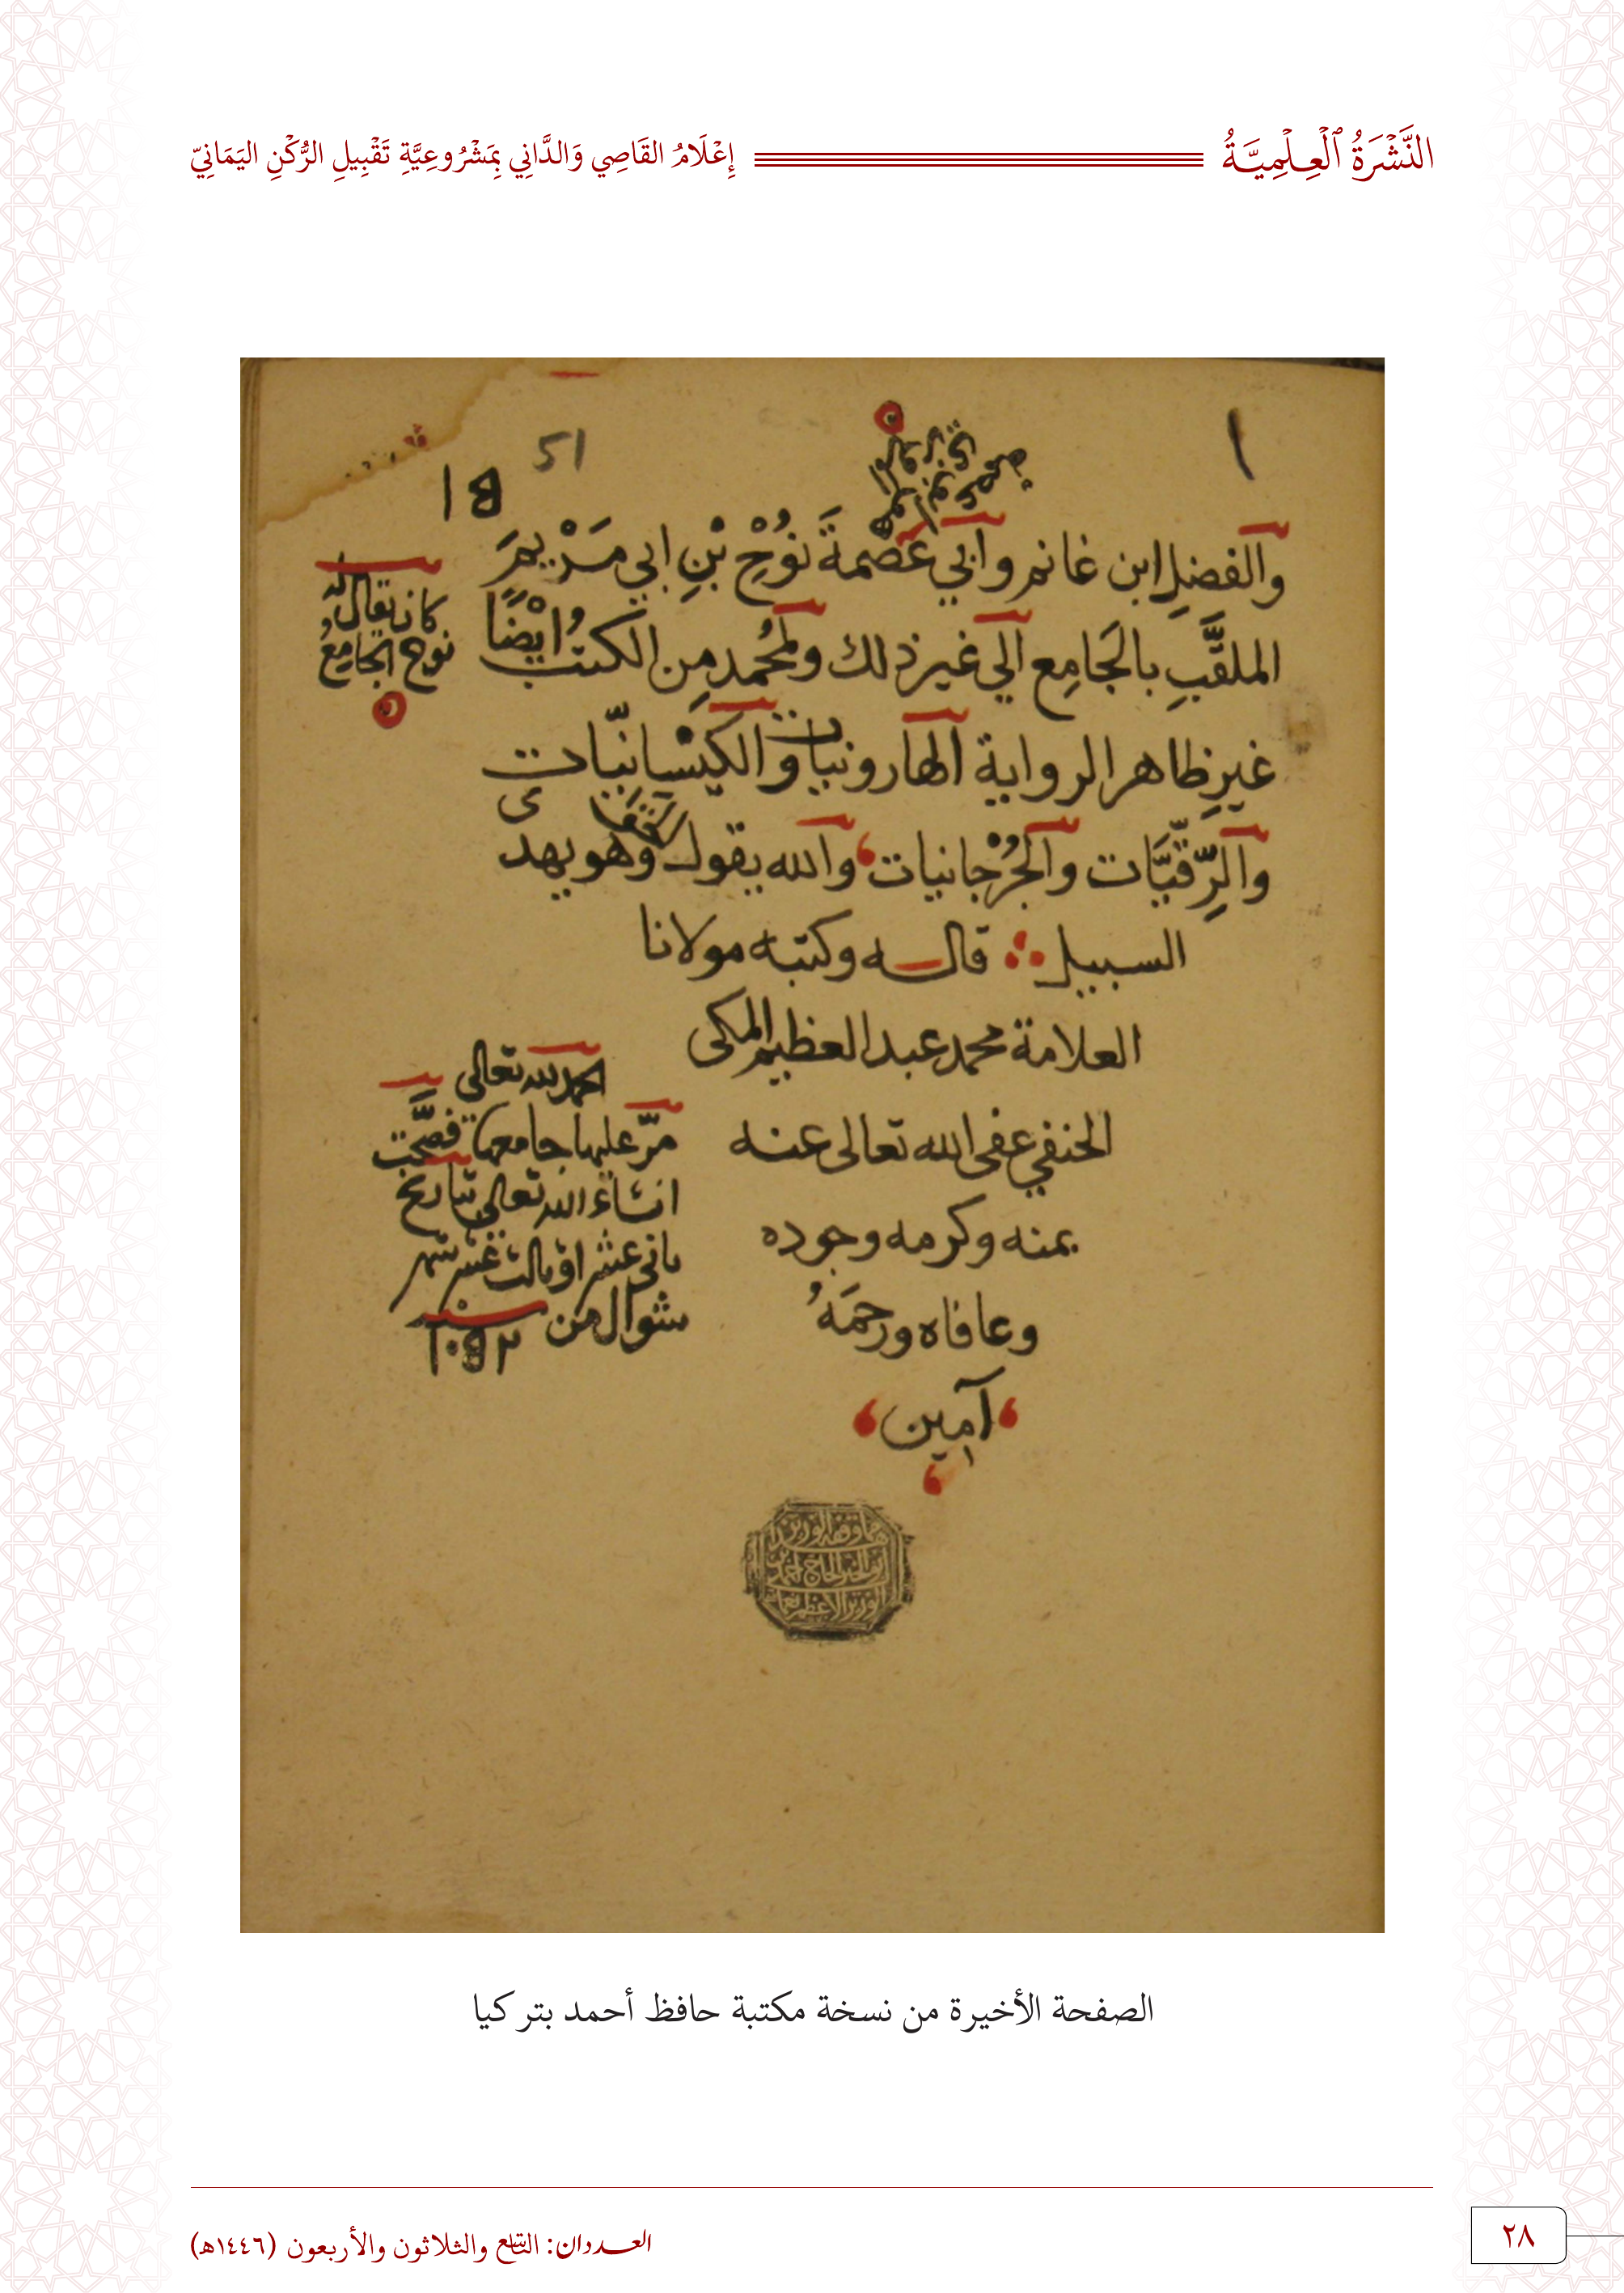 النَّشْرَةُ ٱلْعِلْمِيَّةُ
إِعْلَامُ القَاصِي وَالدَّانِي بِمَشْرُوعِيَّةِ تَقْبِيلِ الرُّكْنِ اليَمَانِيّ
والفضلِ ابن غانم وابي عَصْمةَ نُوْحِ بْنِ ابي مَرْيمَ
الملقَّبِ بالجَامِعِ الي غير ذلك ولمُحَمد مِن الكتبُ ايْضًا
كان يقال له
نوح الجامِعُ
غيرِ ظاهر الرواية الهارونيات والكَيْسانِيّات
والرِّقّيَّات والجُرْجانيات والله يقول وهو يهدى
السبيل قاله وكتبه مولانا
العلامة محمد عبد العظيم المكى
الحنفي عفى الله تعالى عنه
بمنه وكرمه وجوده
وعافاه ورحمَهُ
آمين
الحمد لله تعالى
مرّ عليها جامعها فصَحّت
انشاء الله تعالى بتاريخ
ثاني عشر او ثالث عشر شهر
شوال من سنة
١٠٥٢
الصفحة الأخيرة من نسخة مكتبة حافظ أحمد بتركيا
العددان: التاسع والثلاثون والأربعون (١٤٤٦هـ)
٢٨